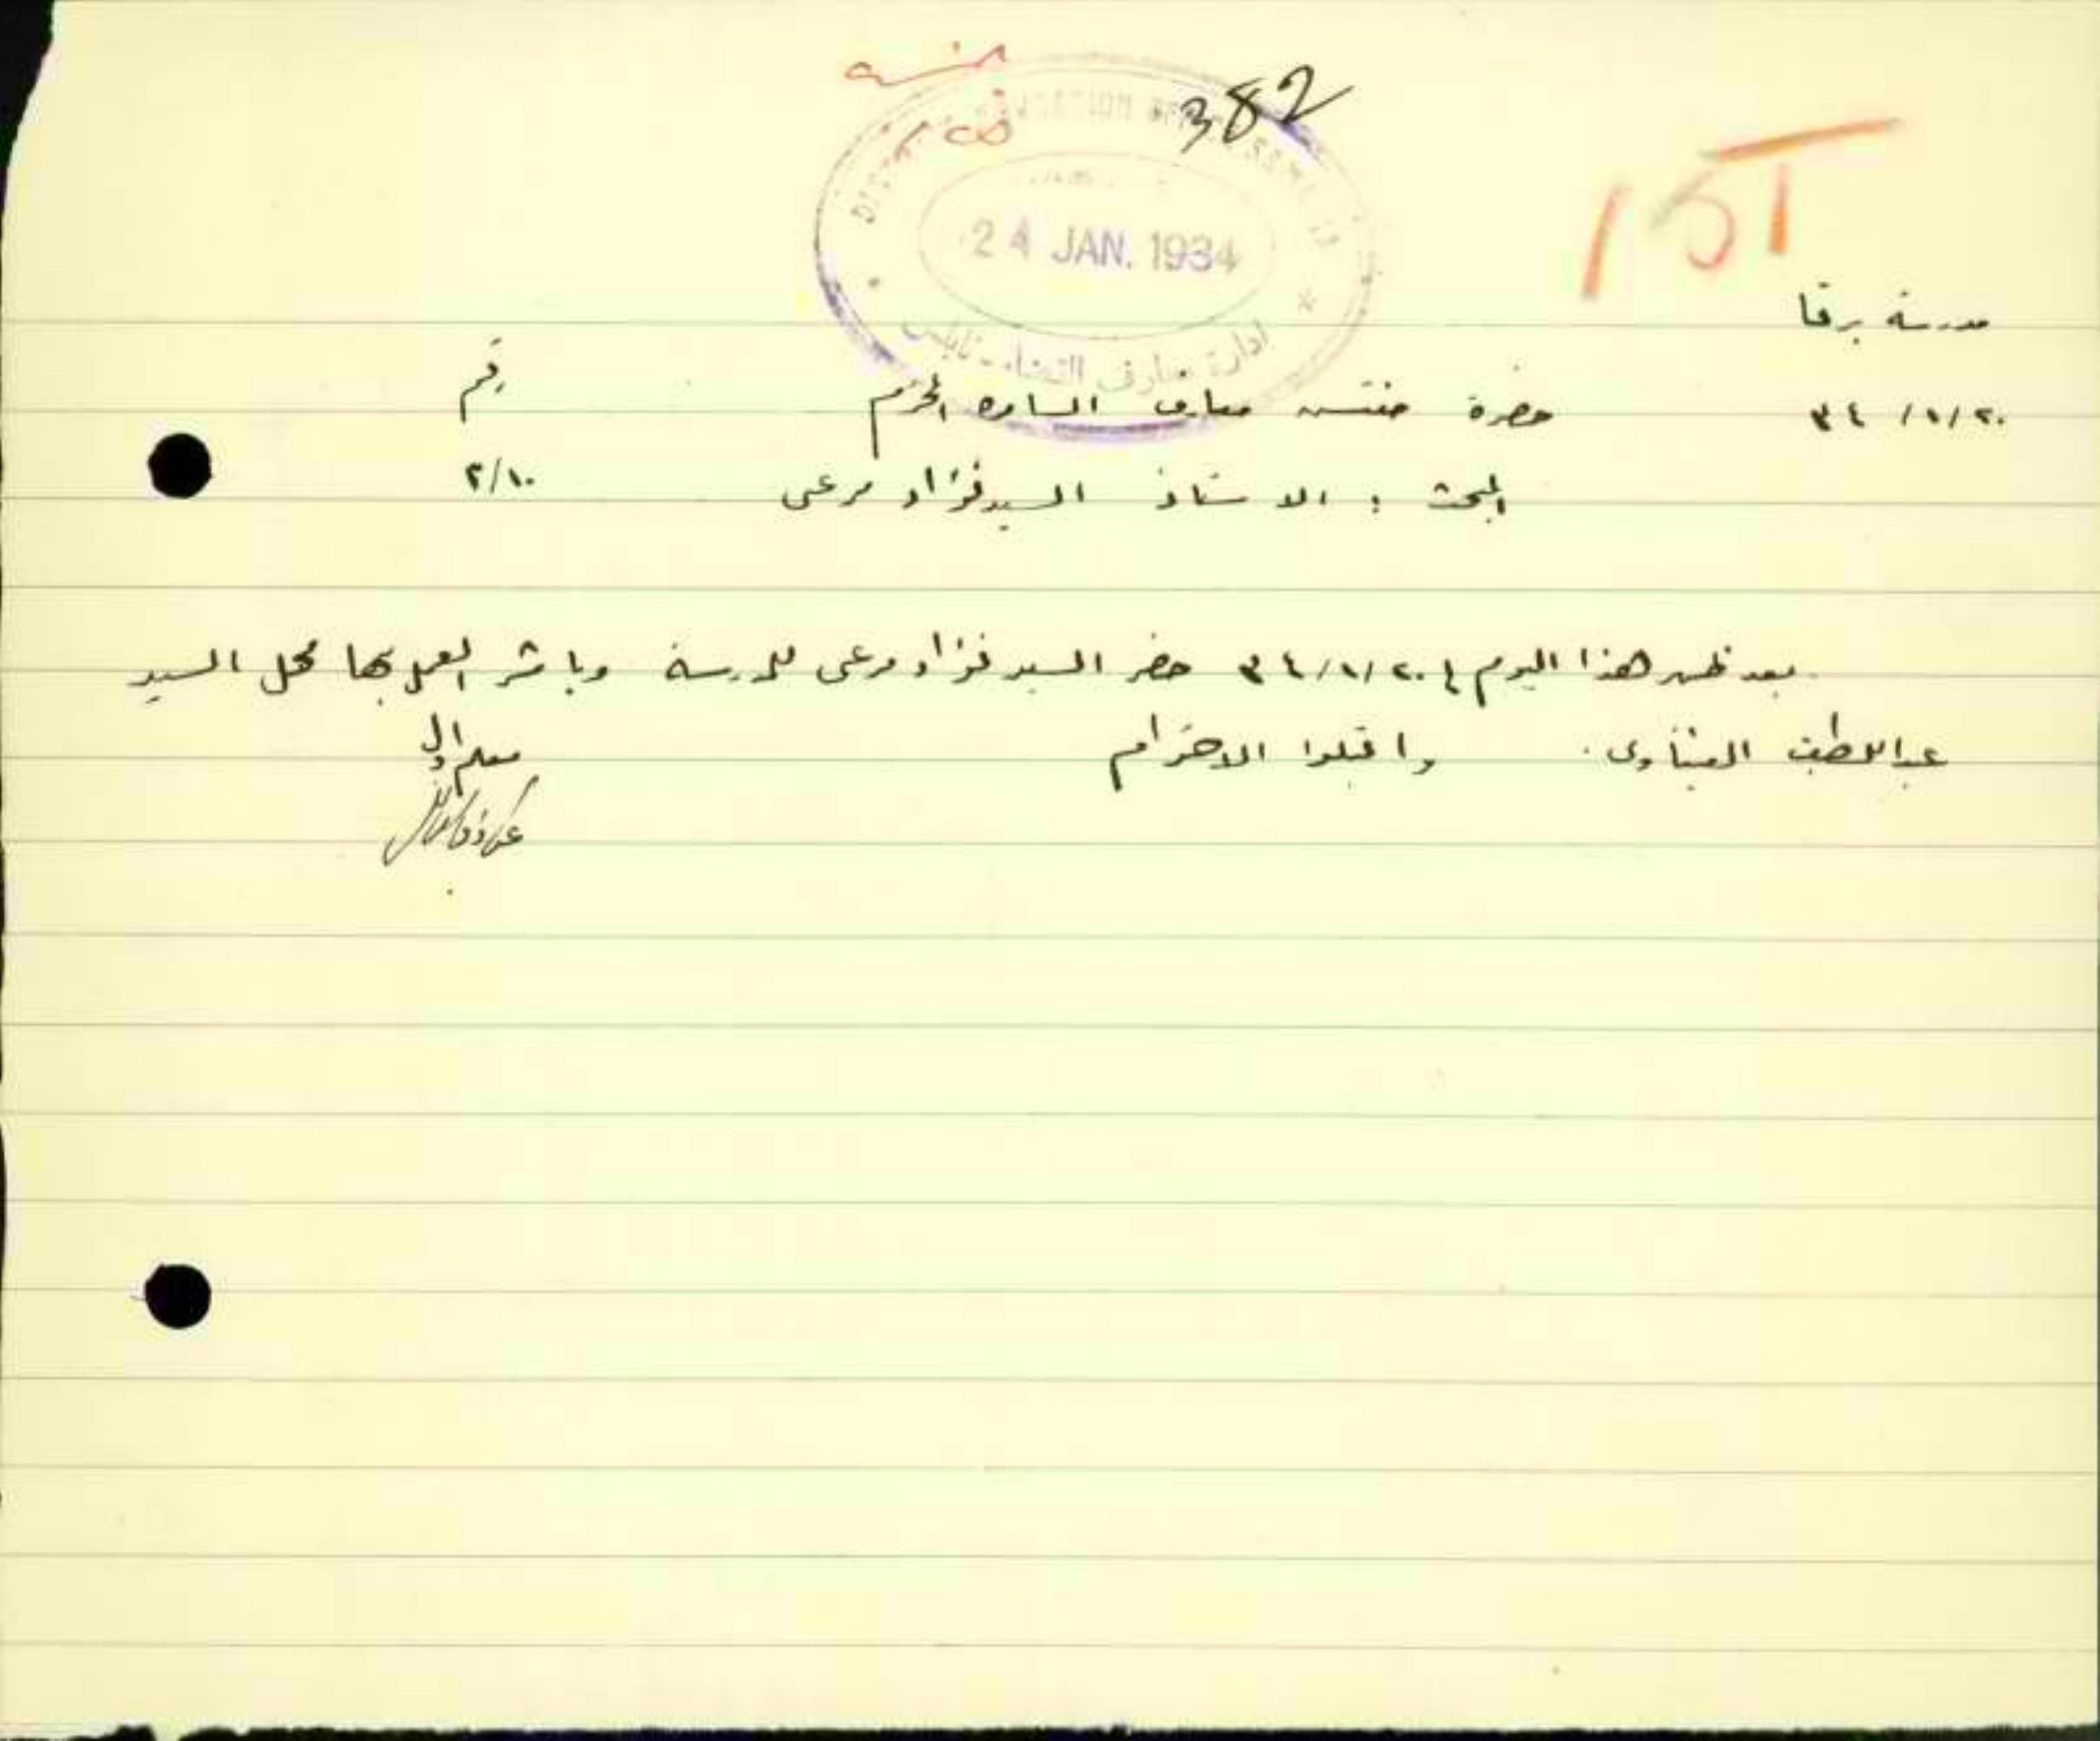 382
24 JAN. 1934
ادارة معارف القضاء - نابلس
مدرسة برقا
٢٠/١/٣٤ حضرة مفتش معارف السامره المحترم رقم
المبحث : الاستاذ السيد فؤاد مرعى ٢/١٠
بعد ظهر هذا اليوم ٢٠/١/٣٤ حضر السيد فؤاد مرعى للمدرسة وباشر العمل بها محل السيد
عبد اللطيف العشاوى . واقبلوا الاحترام
معلم اول